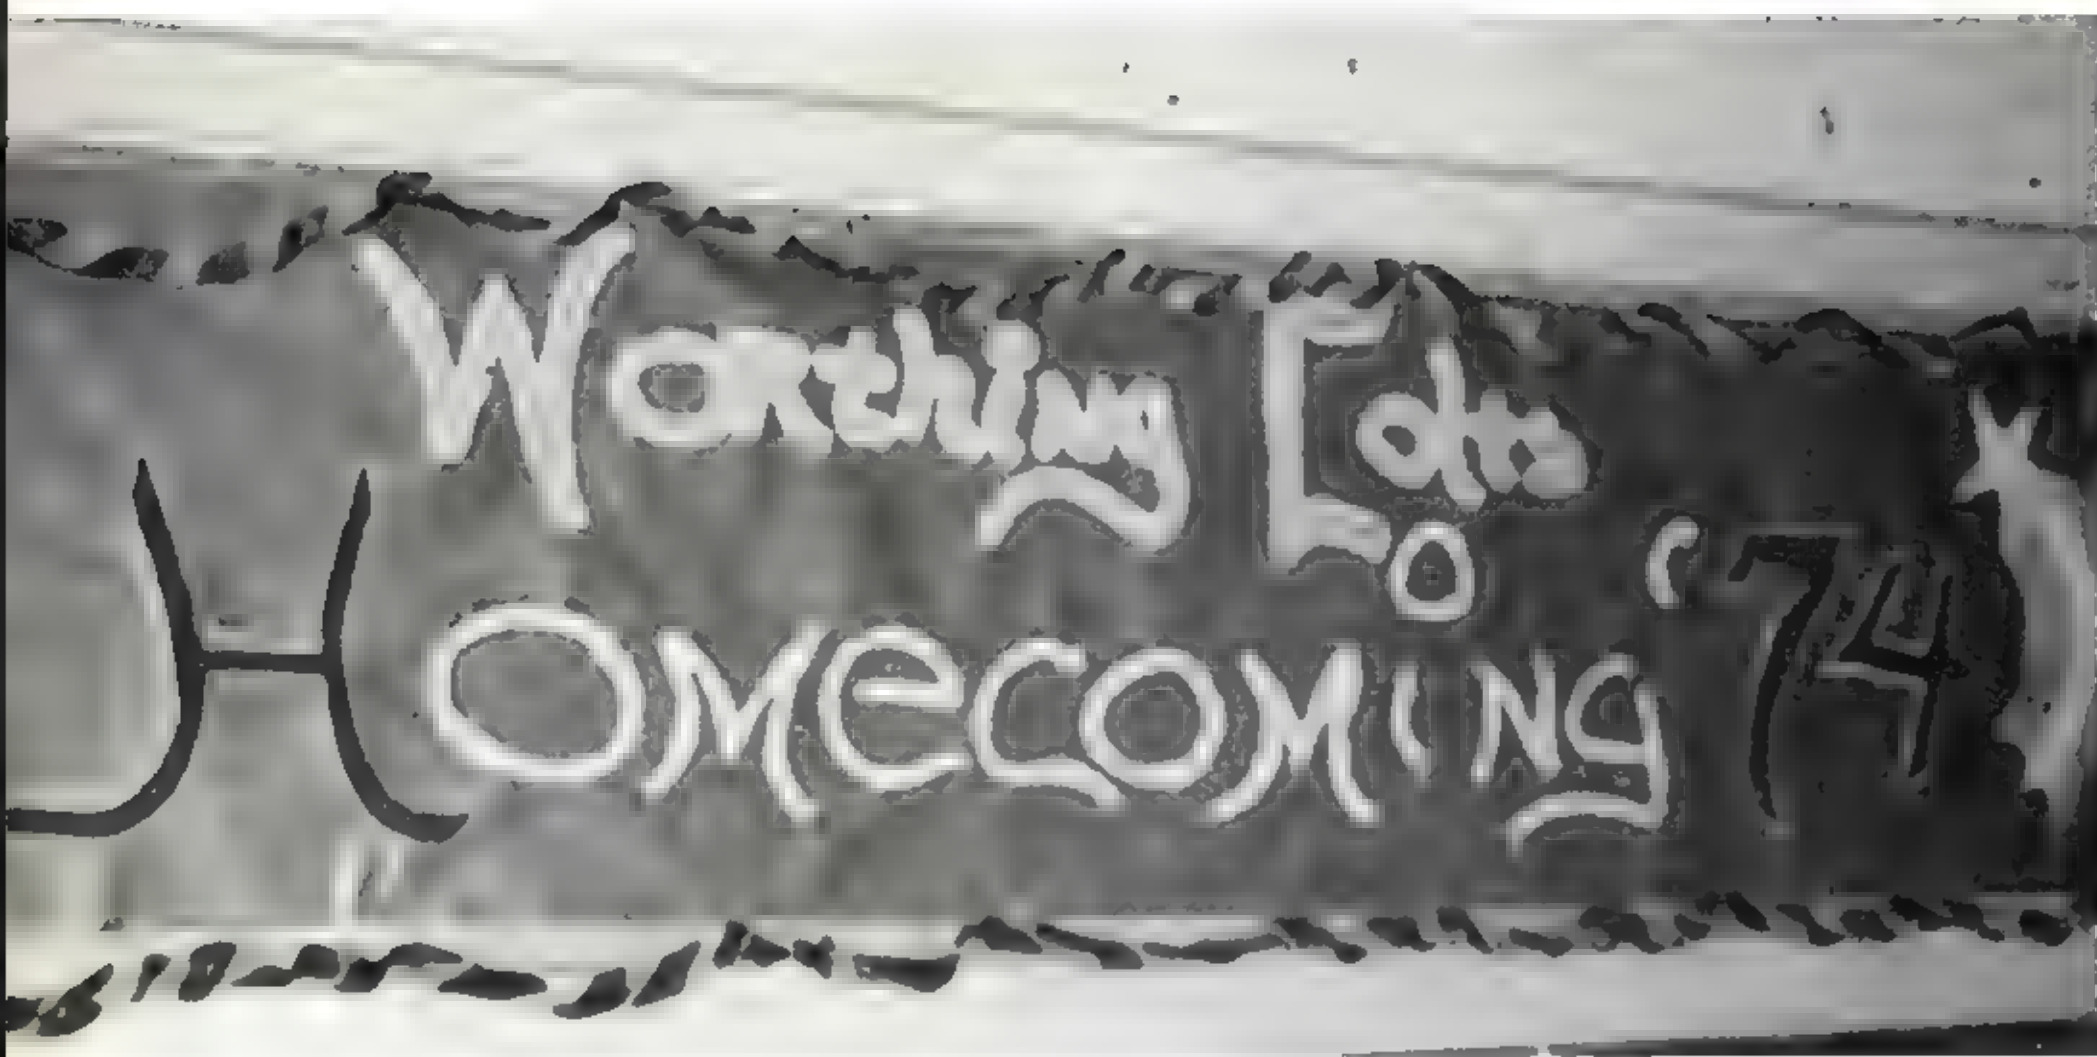 Worthing
HOMeCOMING '74